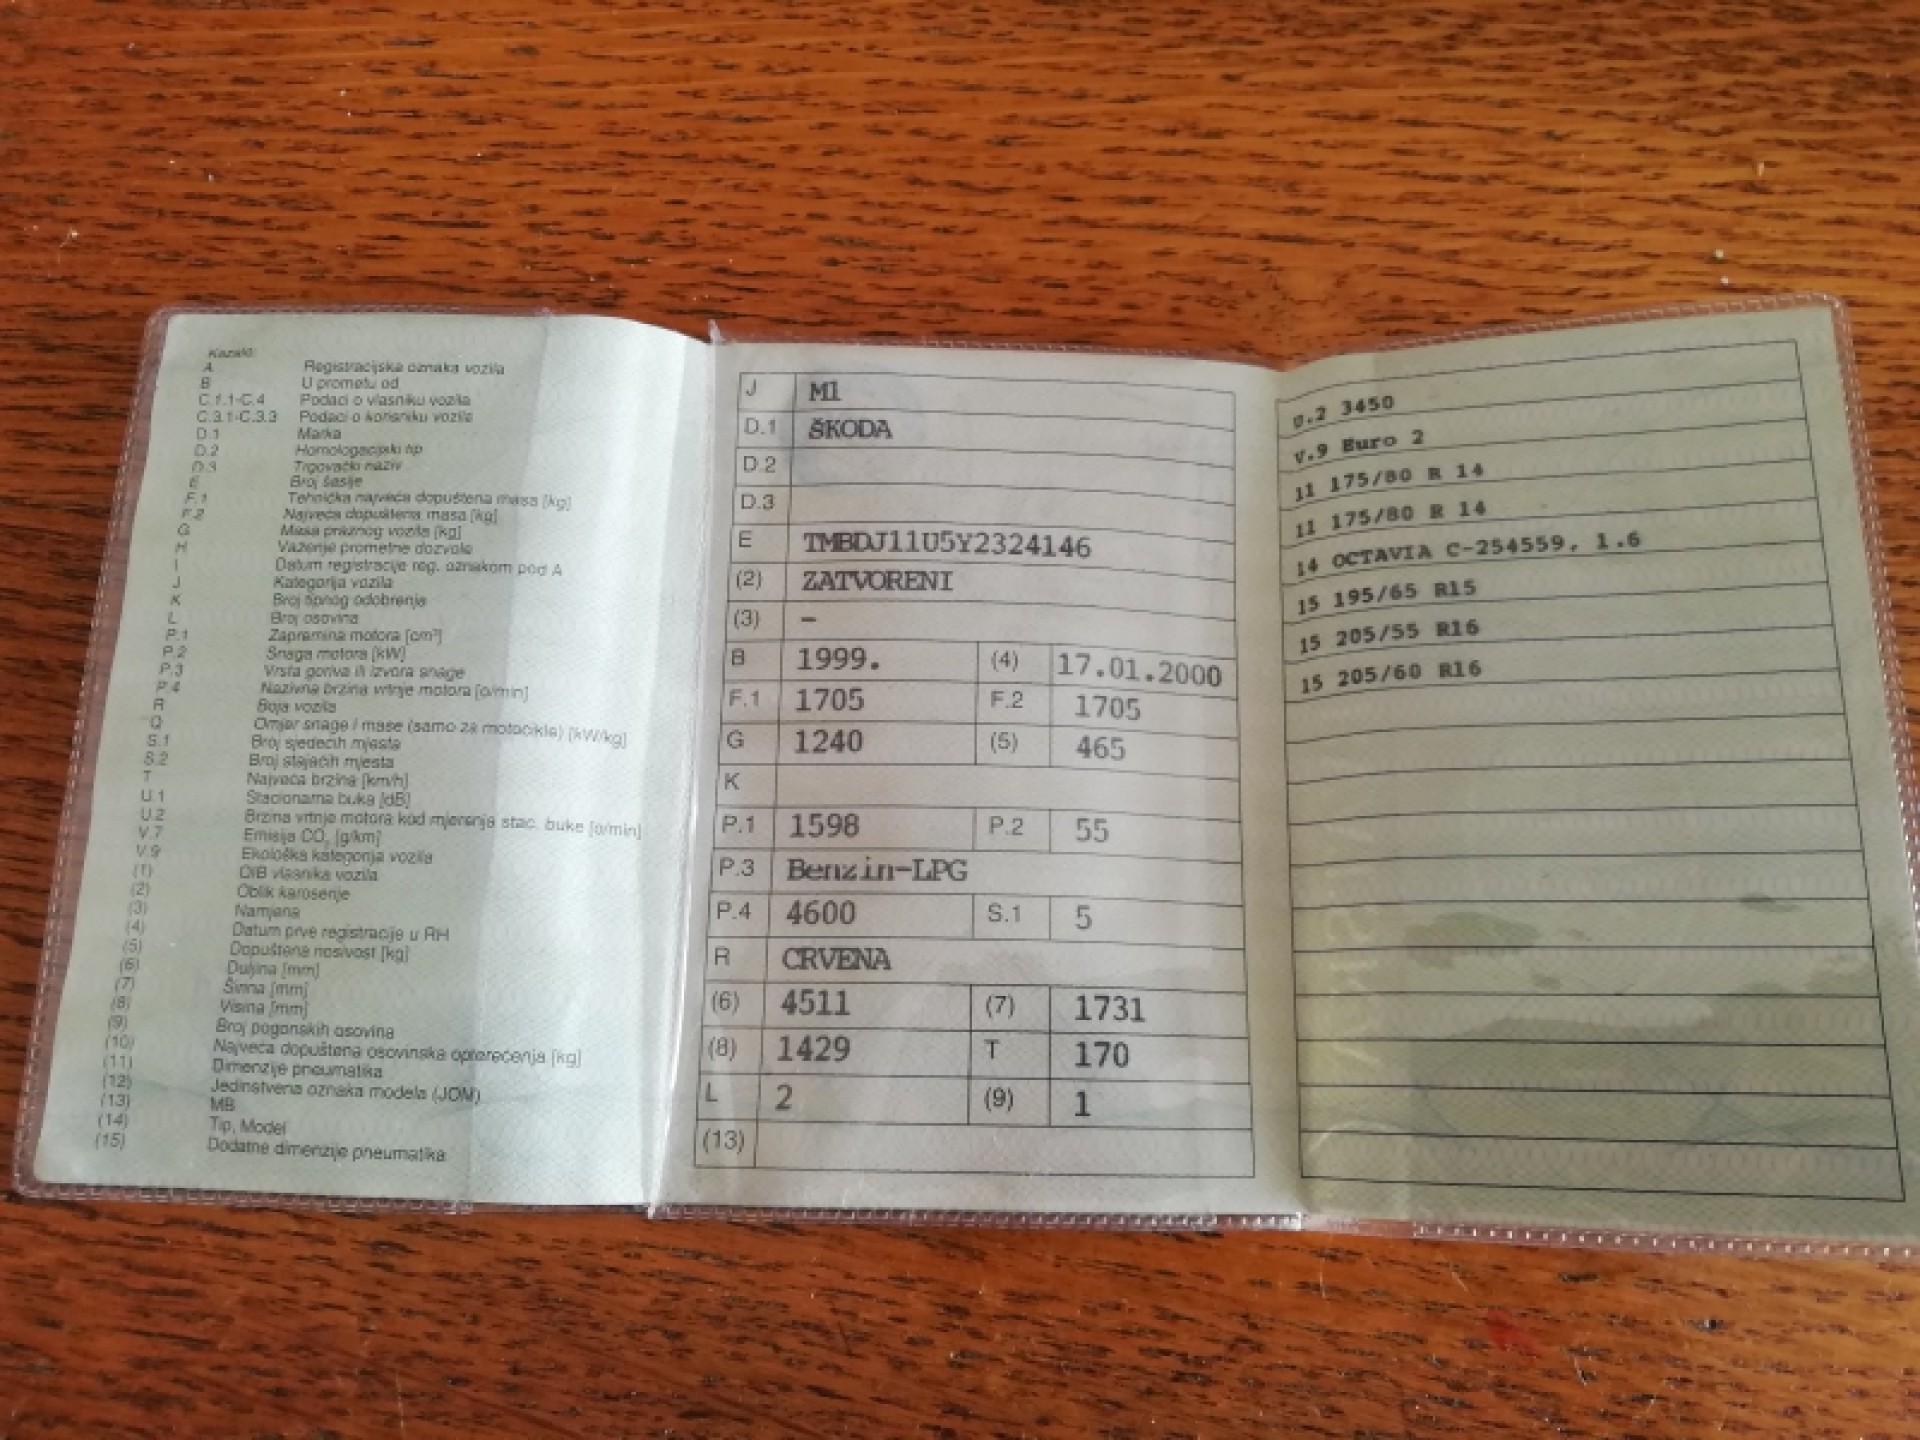 Kazalo:
A Registracijska oznaka vozila
B U prometu od
C.1.1-C.4 Podaci o vlasniku vozila
C.3.1-C.3.3 Podaci o korisniku vozila
D.1 Marka
D.2 Homologacijski tip
D.3 Trgovački naziv
E Broj šasije
F.1 Tehnička najveća dopuštena masa [kg]
F.2 Najveća dopuštena masa [kg]
G Masa praznog vozila [kg]
H Važenje prometne dozvole
I Datum registracije reg. oznakom pod A
J Kategorija vozila
K Broj tipnog odobrenja
L Broj osovina
P.1 Zapremina motora [cm³]
P.2 Snaga motora [kW]
P.3 Vrsta goriva ili izvora snage
P.4 Nazivna brzina vrtnje motora [o/min]
R Boja vozila
Q Omjer snage i mase (samo za motocikle) [kW/kg]
S.1 Broj sjedećih mjesta
S.2 Broj stajaćih mjesta
T Najveća brzina [km/h]
U.1 Stacionarna buka [dB]
U.2 Brzina vrtnje motora kod mjerenja stac. buke [o/min]
V.7 Emisija CO₂ [g/km]
V.9 Ekološka kategorija vozila
(1) OIB vlasnika vozila
(2) Oblik karoserije
(3) Namjena
(4) Datum prve registracije u RH
(5) Dopuštena nosivost [kg]
(6) Duljina [mm]
(7) Širina [mm]
(8) Visina [mm]
(9) Broj pogonskih osovina
(10) Najveća dopuštena osovinska opterećenja [kg]
(11) Dimenzije pneumatika
(12) Jedinstvena oznaka modela (JOM)
(13) MB
(14) Tip, Model
(15) Dodatne dimenzije pneumatika
J M1
D.1 ŠKODA
D.2
D.3
E TMBDJ11U5Y2324146
(2) ZATVORENI
(3) –
B 1999. (4) 17.01.2000
F.1 1705 F.2 1705
G 1240 (5) 465
K
P.1 1598 P.2 55
P.3 Benzin-LPG
P.4 4600 S.1 5
R CRVENA
(6) 4511 (7) 1731
(8) 1429 T 170
L 2 (9) 1
(13)
U.2 3450
V.9 Euro 2
11 175/80 R 14
11 175/80 R 14
14 OCTAVIA C-254559, 1.6
15 195/65 R15
15 205/55 R16
15 205/60 R16